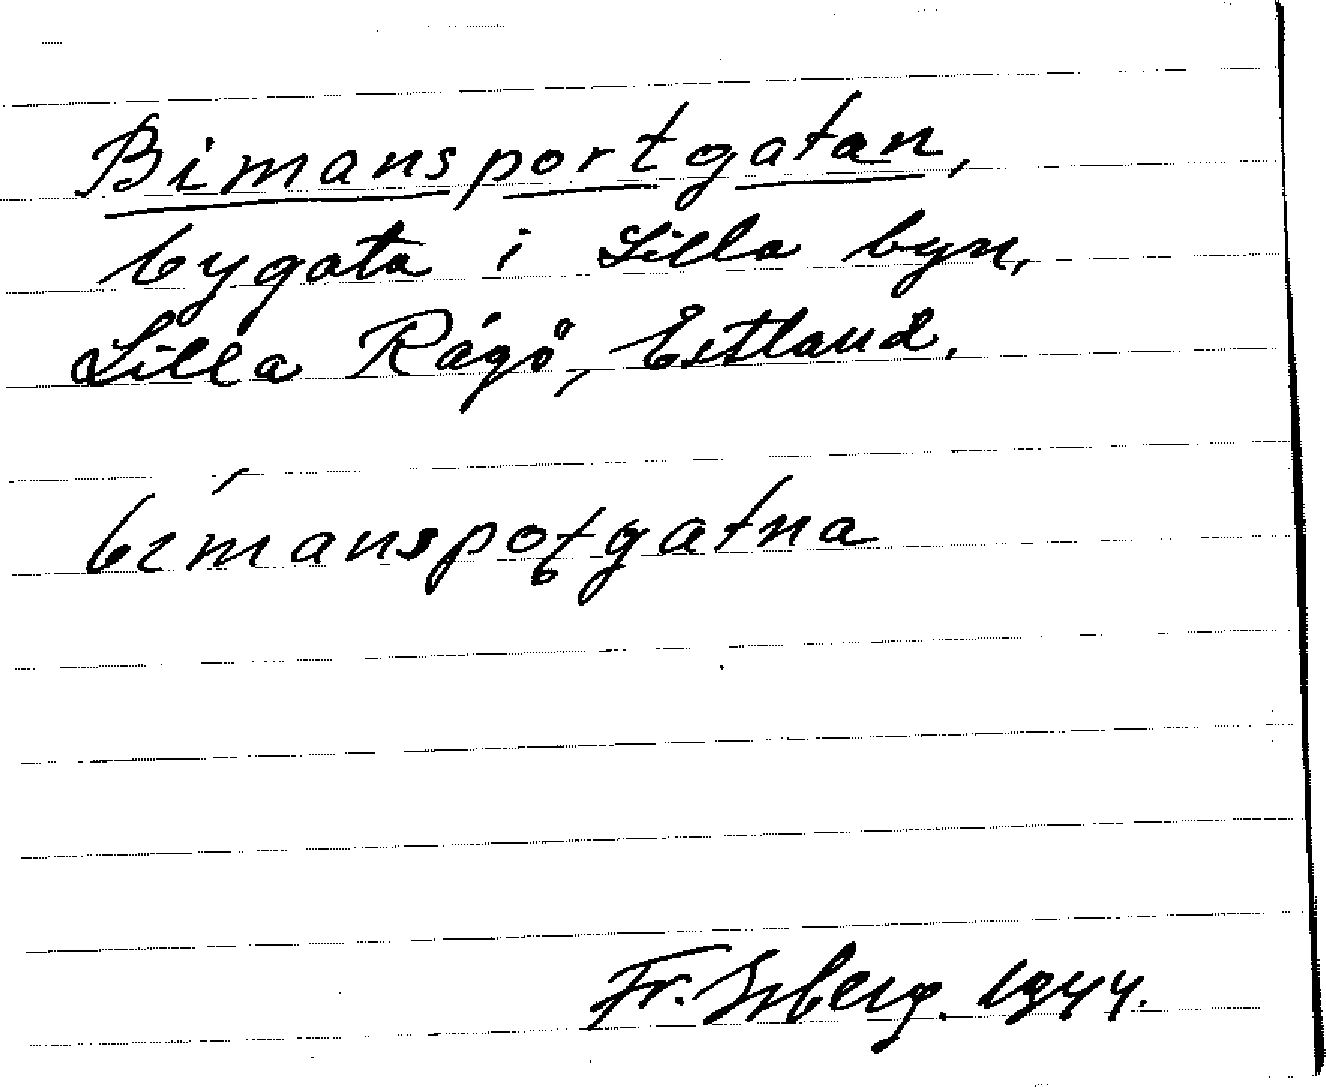 Bimansportgatan,
bygata i Lilla byn,
Lilla Rågö, Estland.
bímanspotgatna
Fr. Isberg. 1944.